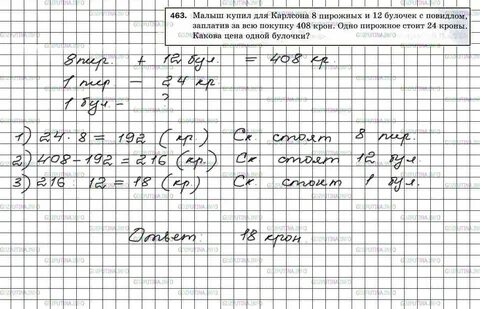 463. Малыш купил для Карлсона 8 пирожных и 12 булочек с повидлом,
заплатив за всю покупку 408 крон. Одно пирожное стоит 24 кроны.
Какова цена одной булочки?
8 пир. + 12 бул. = 408 кр.
1 пир — 24 кр
1 бул - ?
1) 24 · 8 = 192 (кр) Ск стоят 8 пир.
2) 408 - 192 = 216 (кр.) Ск стоят 12 бул.
3) 216 : 12 = 18 (кр) Ск стоит 1 бул.
Ответ: 18 крон